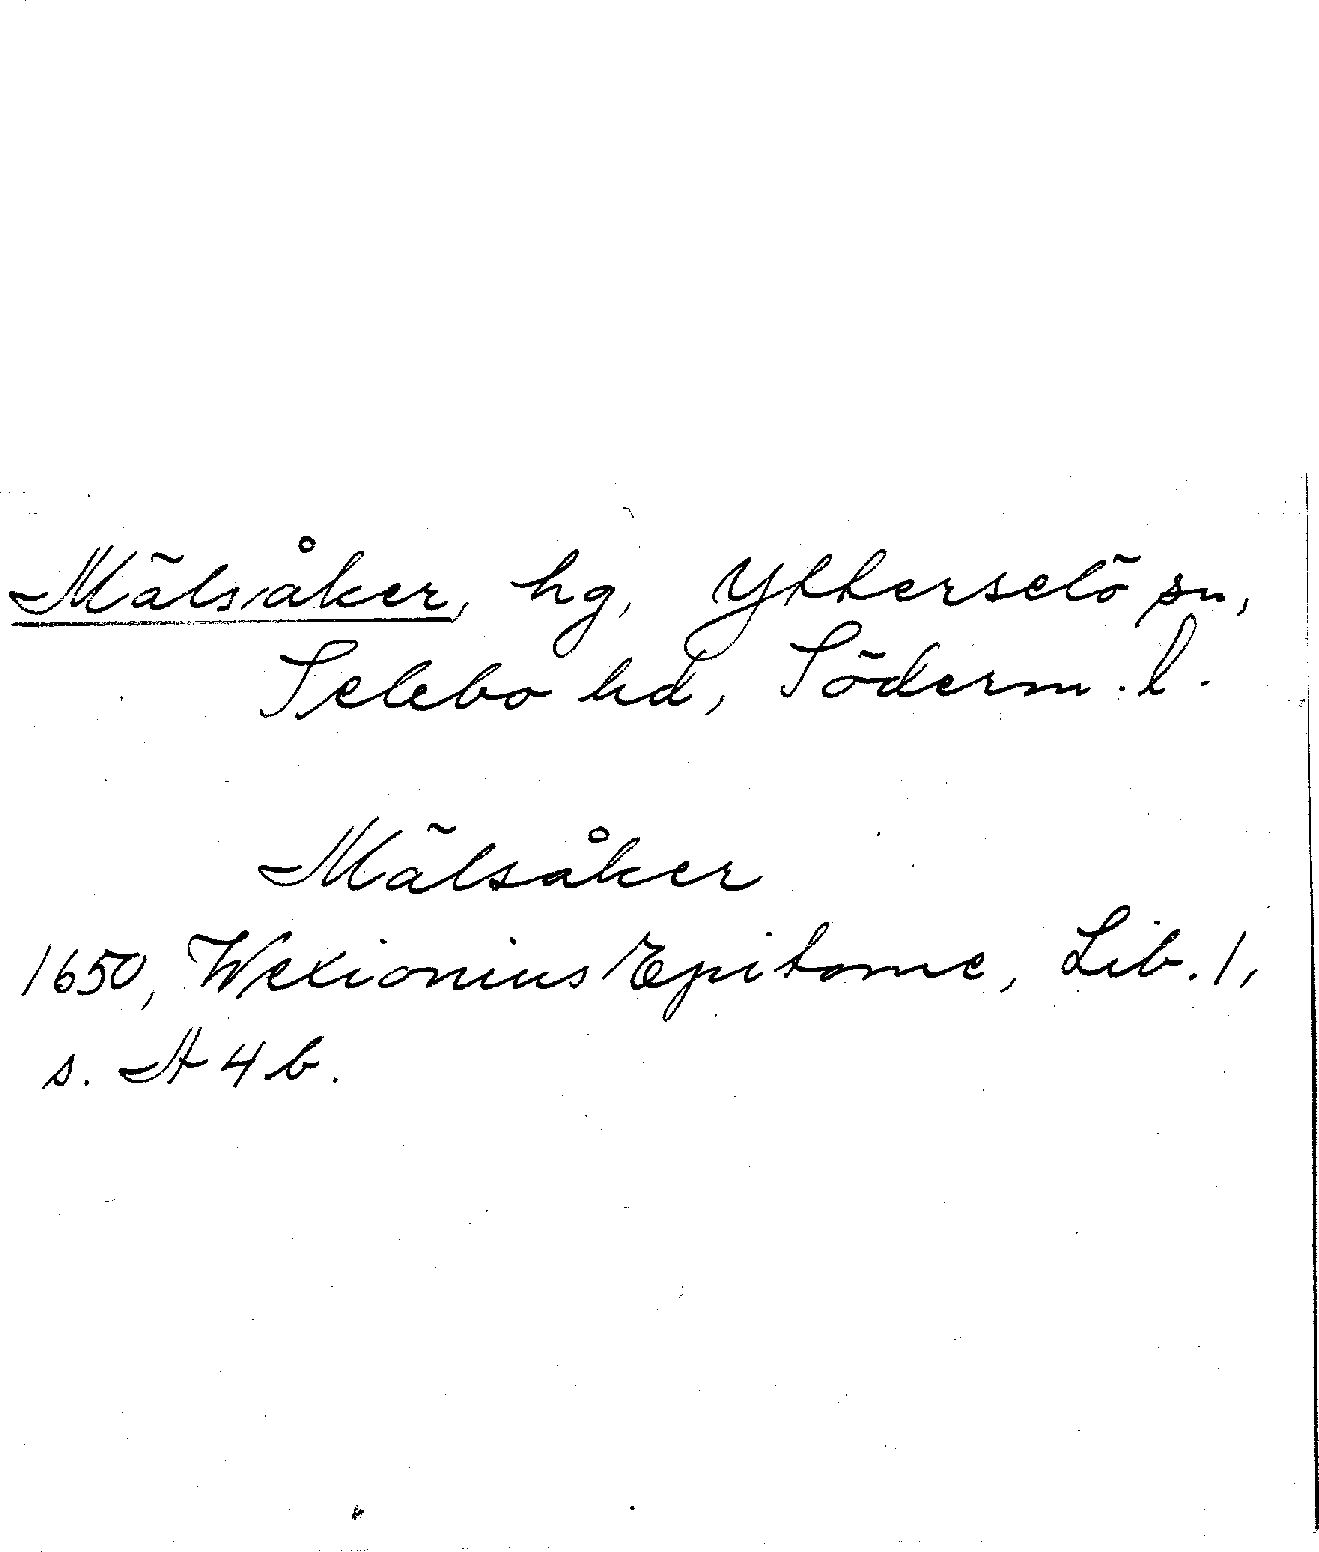 Mälsåker, hg, Ytterselö sn,
Selebo hd, Söderm. l.
Mälsåker
1650, Wexionius Epitome, Lib. 1,
s. A 4 b.